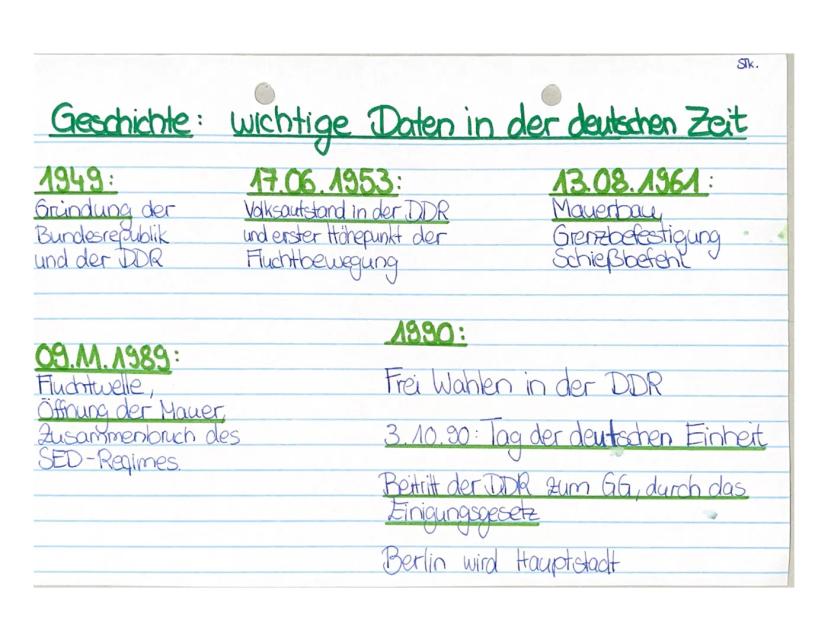 Stk.
Geschichte: wichtige Daten in der deutschen Zeit
1949:
Gründung der
Bundesrepublik
und der DDR
17.06.1953:
Volksaufstand in der DDR
und erster Höhepunkt der
Fluchtbewegung
13.08.1961:
Mauerbau,
Grenzbefestigung
Schießbefehl
09.11.1989:
Fluchtwelle,
Öffnung der Mauer,
Zusammenbruch des
SED-Regimes.
1990:
Frei Wahlen in der DDR
3.10.90: Tag der deutschen Einheit
Beitritt der DDR zum GG, durch das
Einigungsgesetz
Berlin wird Hauptstadt